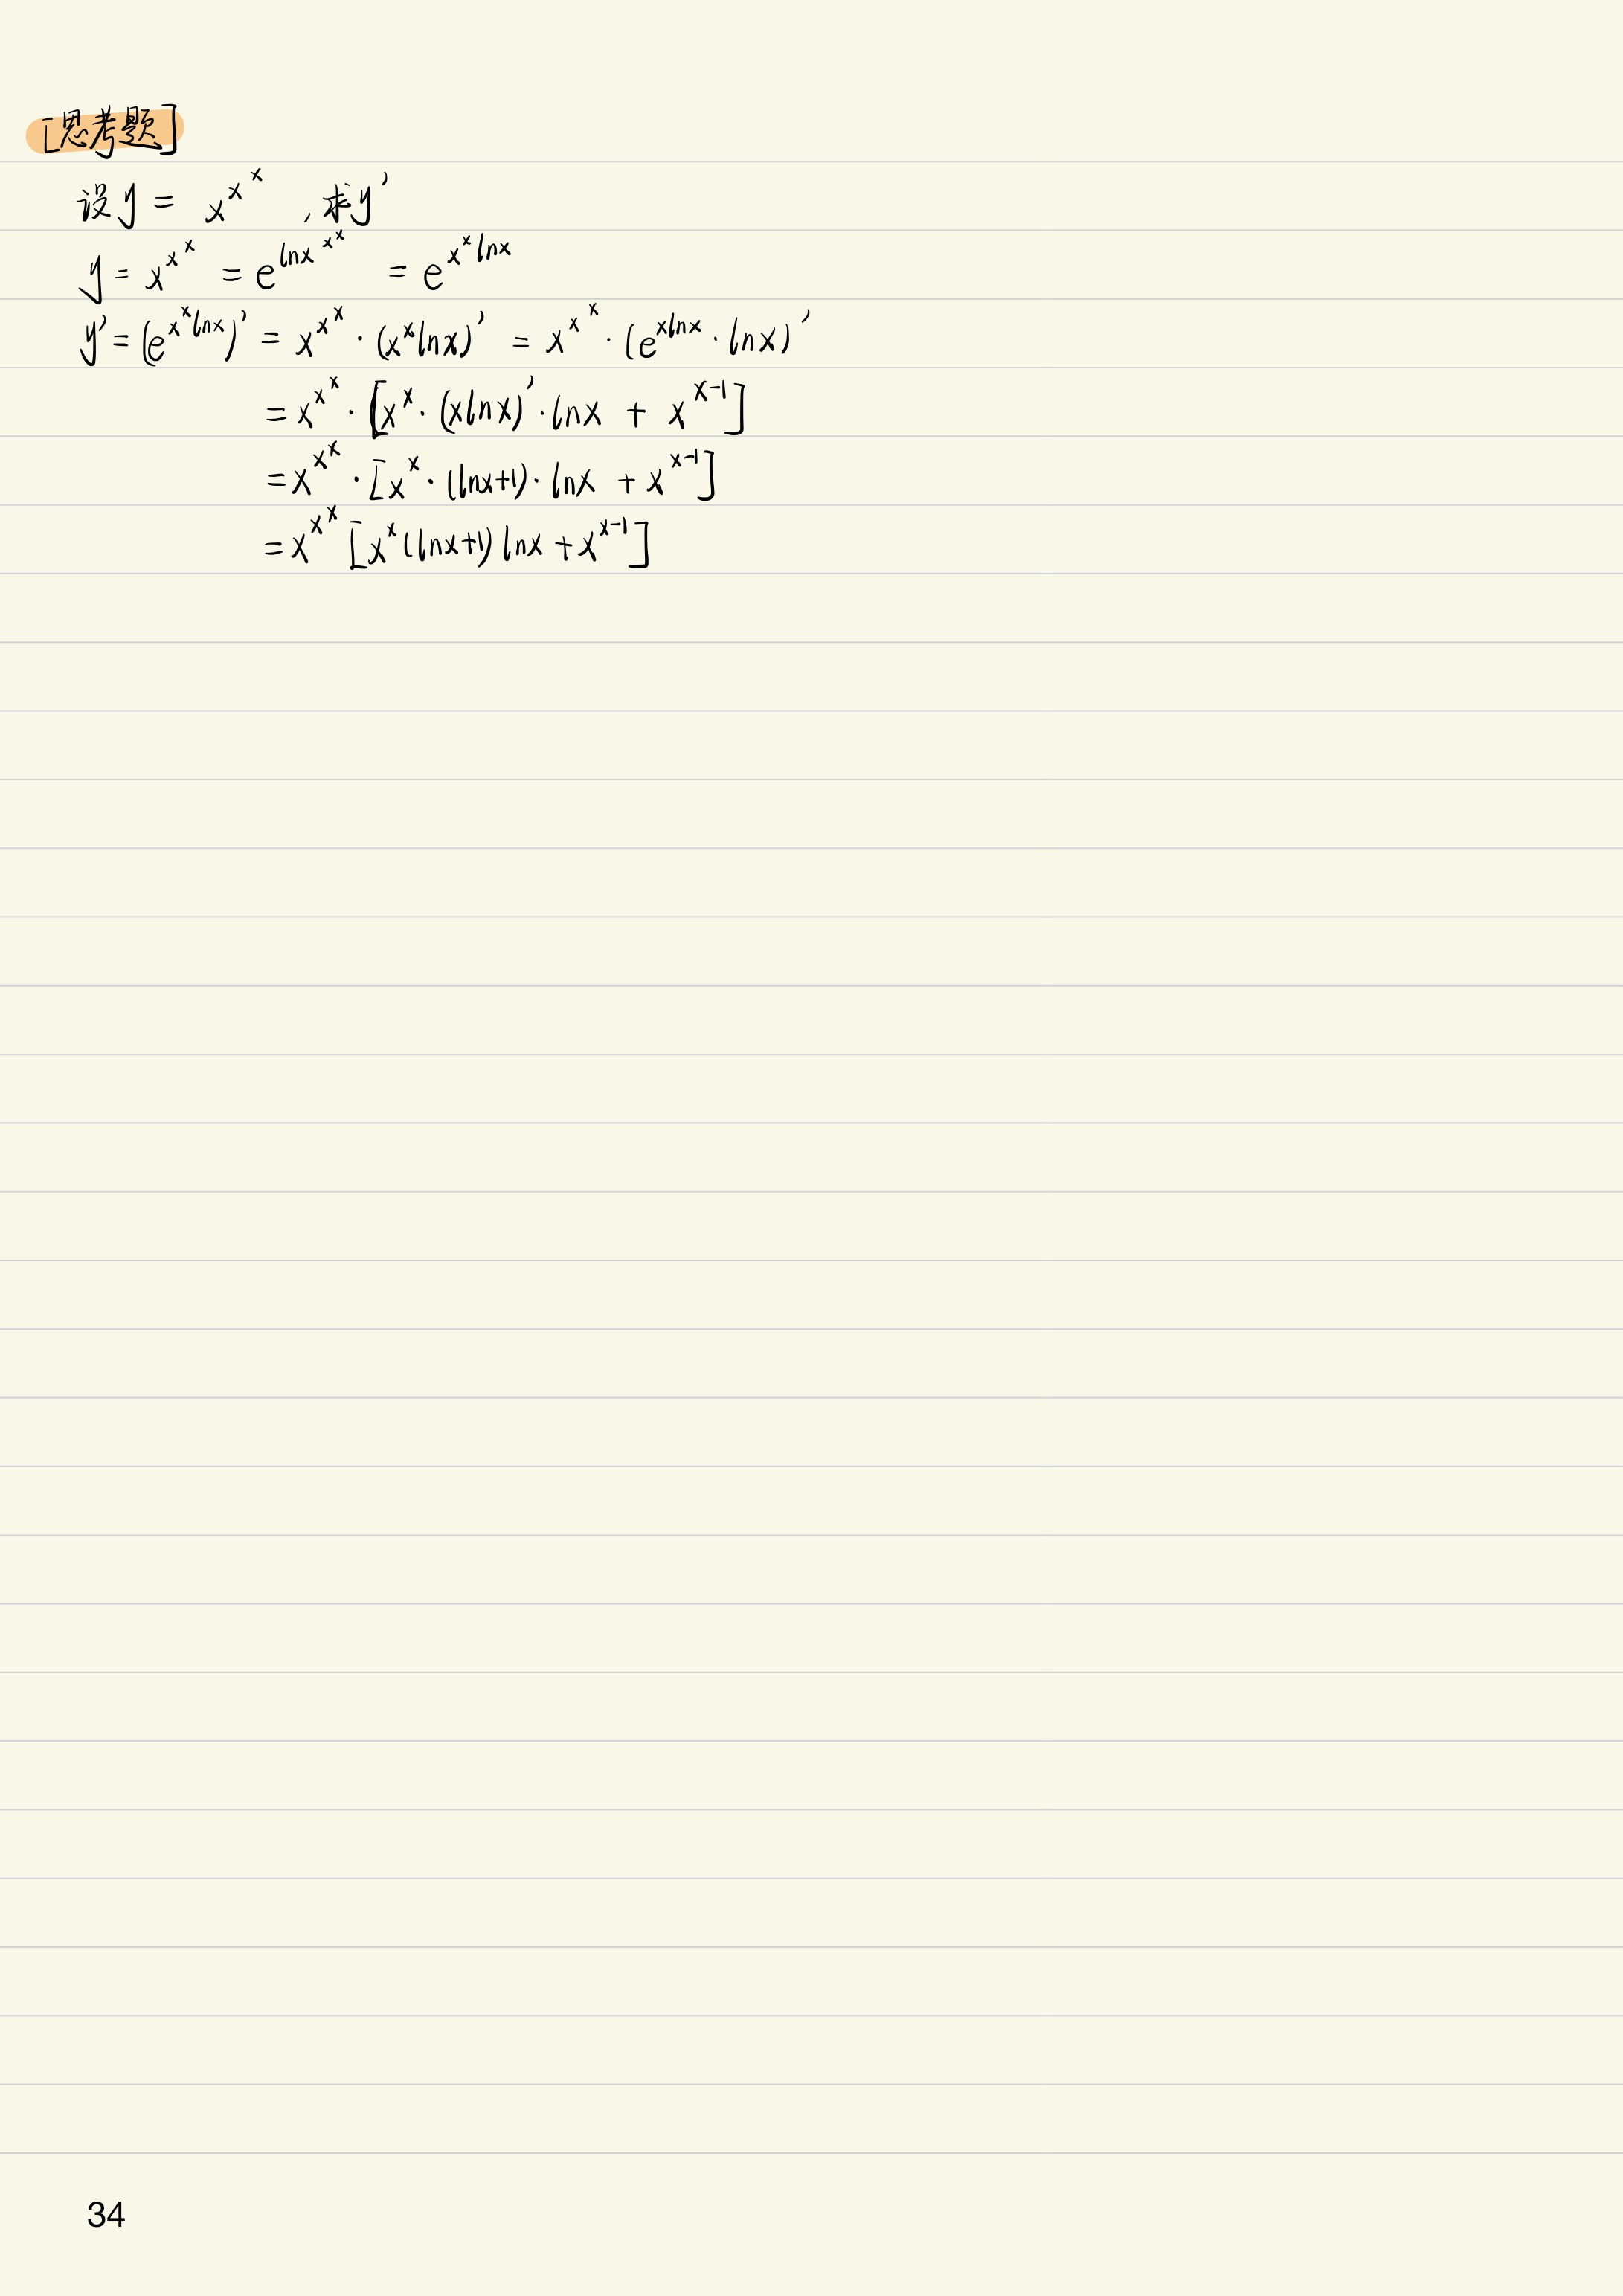 [思考题]
设y = x^{x^x} , 求y'
y = x^{x^x} = e^{lnx^{x^x}} = e^{x^x lnx}
y' = (e^{x^x lnx})' = x^{x^x} · (x^x lnx)' = x^{x^x} · (e^{xlnx} · lnx)'
= x^{x^x} · [x^x · (xlnx)' · lnx + x^{x-1}]
= x^{x^x} · [x^x · (lnx+1) · lnx + x^{x-1}]
= x^{x^x} [x^x (lnx+1) lnx + x^{x-1}]
34